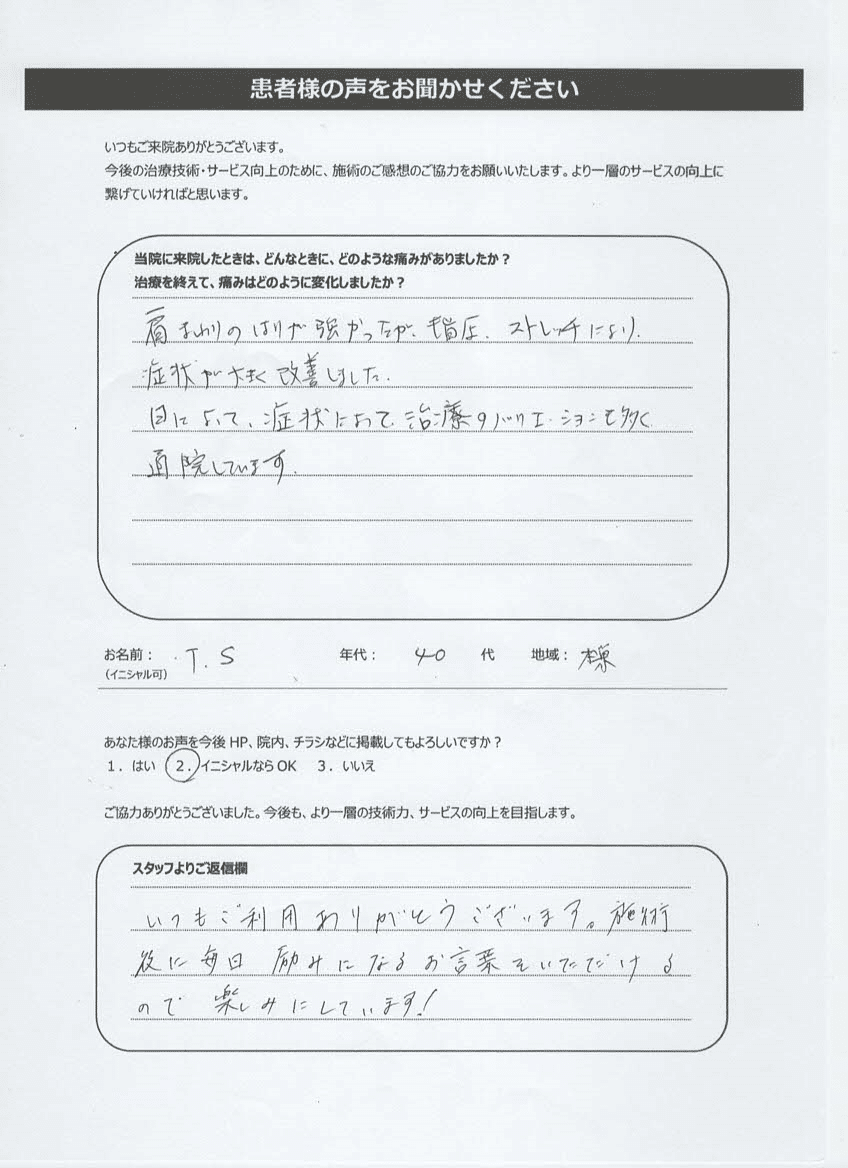 患者様の声をお聞かせください
いつもご来院ありがとうございます。
今後の治療技術・サービス向上のために、施術のご感想のご協力をお願いいたします。より一層のサービスの向上に
繋げていければと思います。
当院に来院したときは、どんなときに、どのような痛みがありましたか？
治療を終えて、痛みはどのように変化しましたか？
肩まわりのはりが強かったが、指圧、ストレッチにより、
症状が大きく改善しました。
日によって、症状によって治療のバリエーションも多く
通院しています。
お名前： T.S 年代： 40 代 地域：
（イニシャル可）
あなた様のお声を今後 HP、院内、チラシなどに掲載してもよろしいですか？
1．はい 2．イニシャルなら OK 3．いいえ
ご協力ありがとうございました。今後も、より一層の技術力、サービスの向上を目指します。
スタッフよりご返信欄
いつもご利用ありがとうございます。施術
後に毎日励みになるお言葉をいただける
ので楽しみにしています！